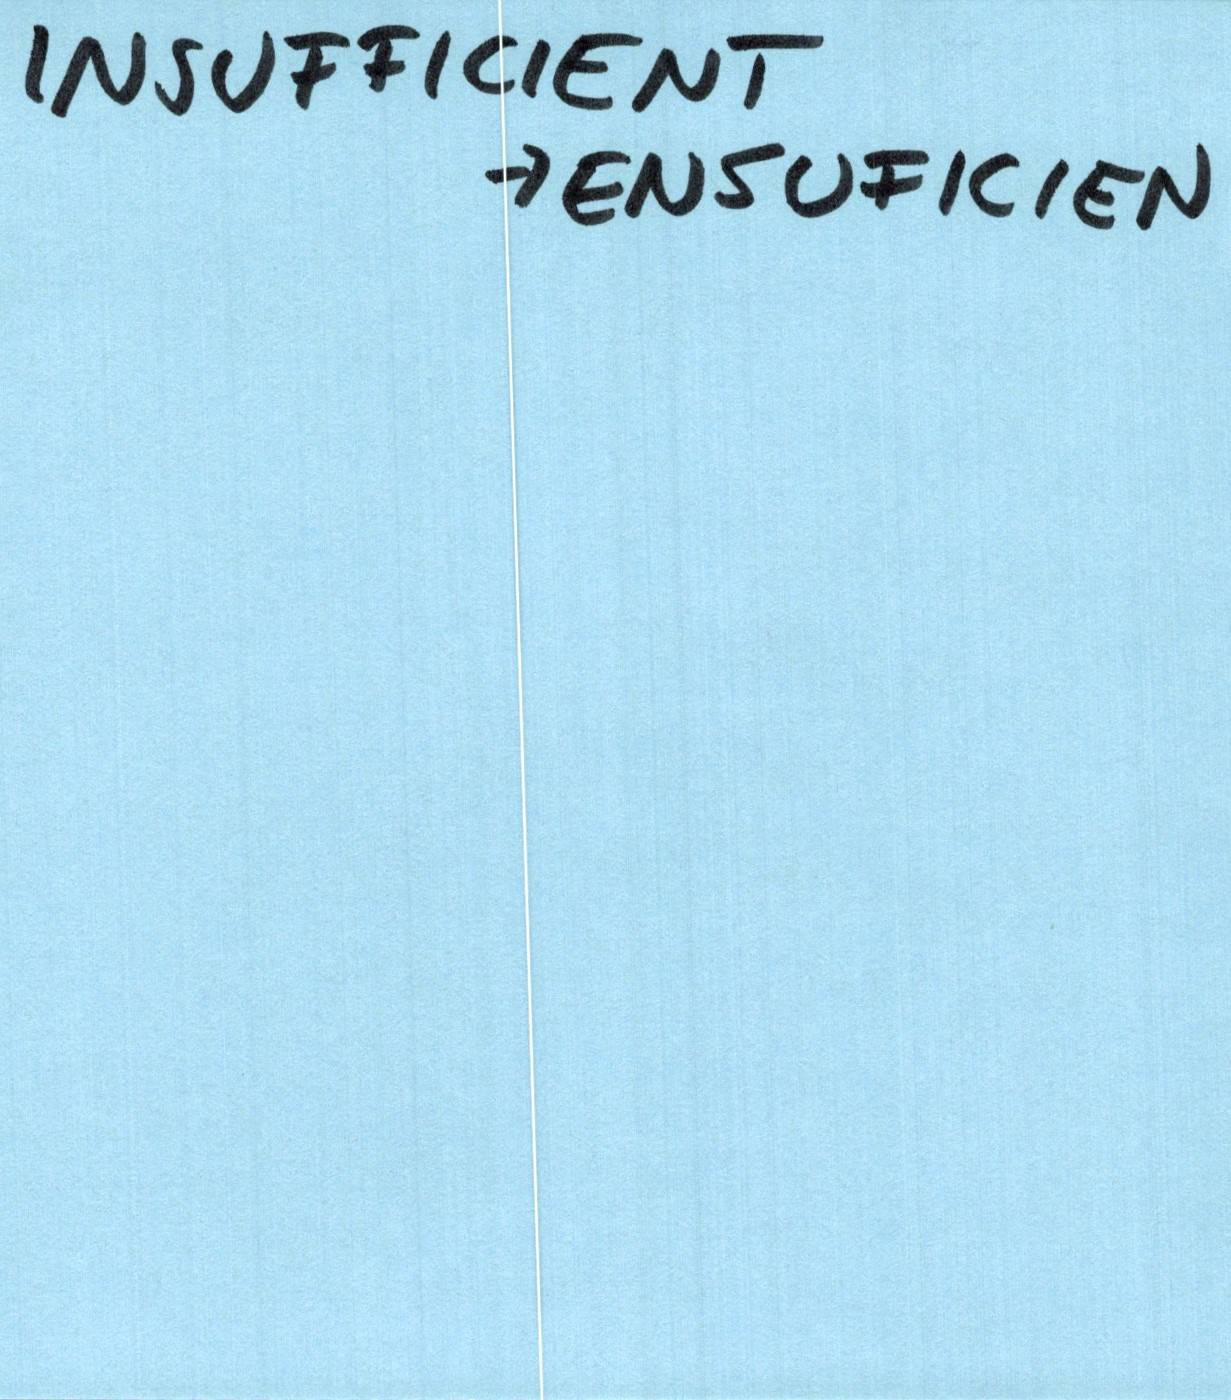 INSUFFICIENT
→ENSUFICIEN